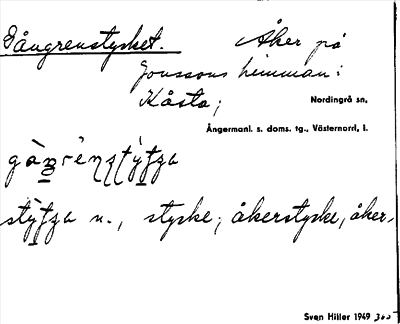 Gångrenstycket. Åker på
Jonssons hemman i
Kåsta;
Nordingrå sn.
Ångermanl. s. doms. tg., Västernorrl. l.
n., stycke; åkerstycke, åker.
Sven Hiller 1949